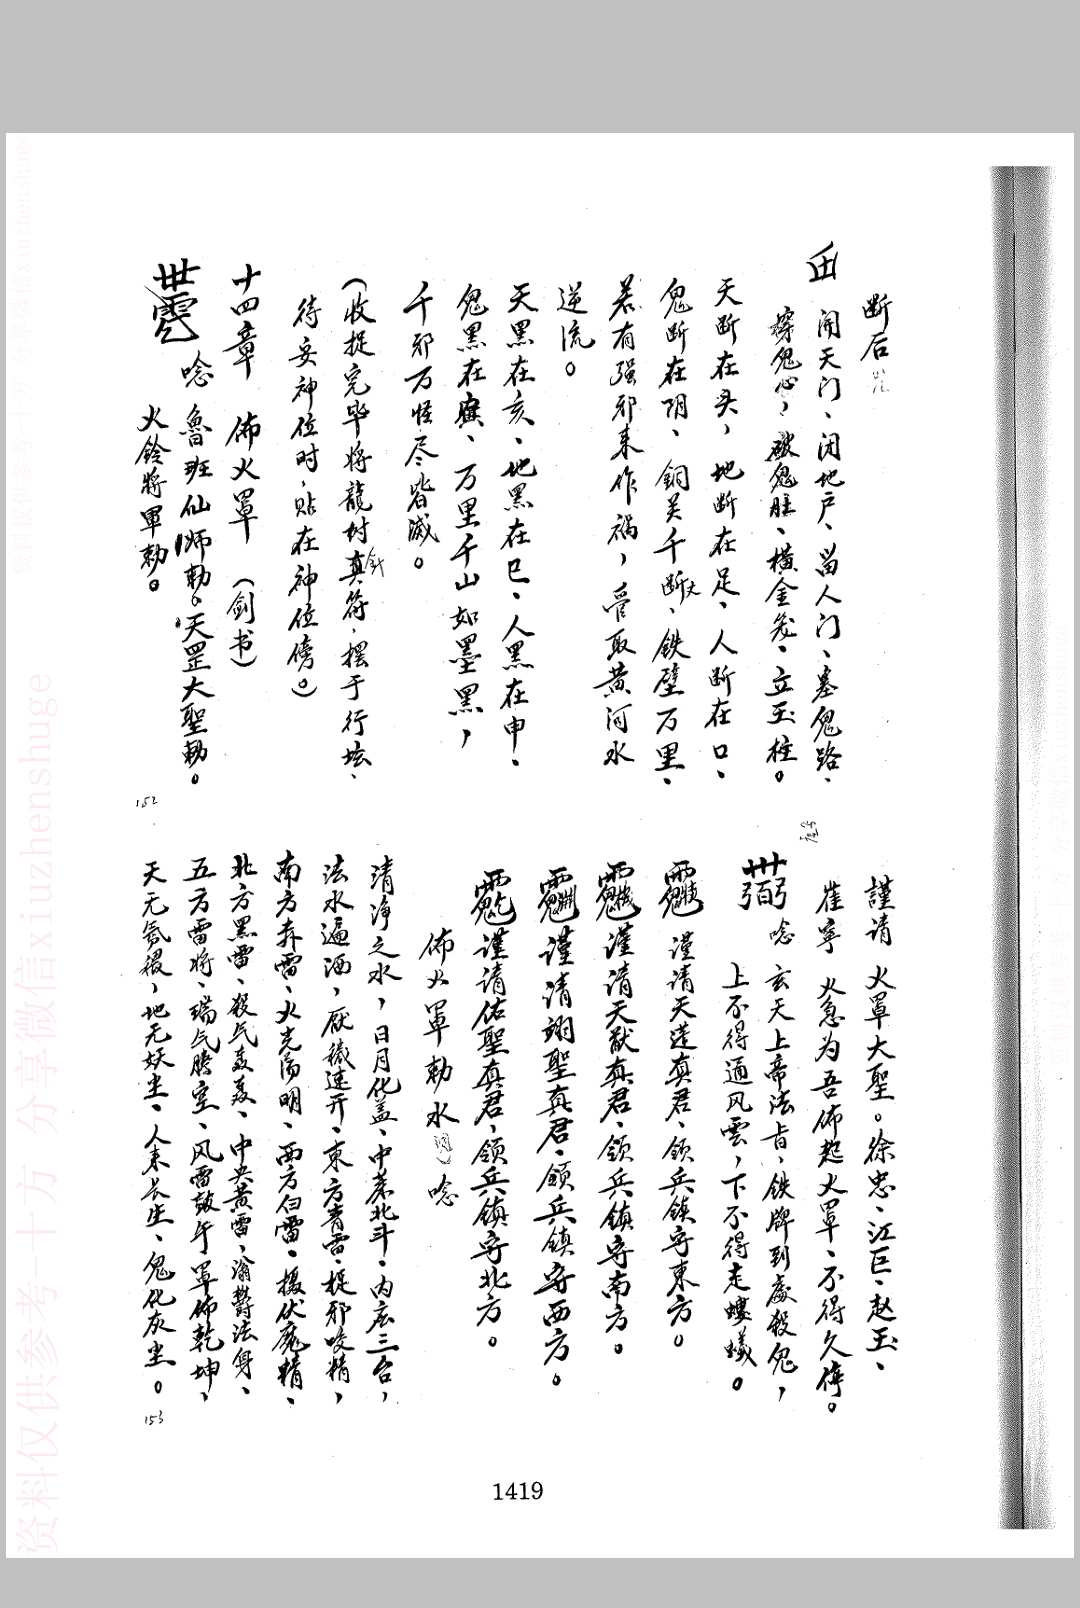 断后
闹天门、闭地户、留人门、塞鬼路、
穿鬼心，破鬼肚、横金笼、立玉柱。
天断在头，地断在足、人断在口、
鬼断在阴、铜关千断丈、铁壁万里、
若有强邪来作祸，受取黄河水
逆流。
天黑在亥、地黑在巳、人黑在申、
鬼黑在寅、万里千山如墨黑，
千邪万怪尽皆滅。
（收捉完毕将龍封真符针，摆于行坛、
待安神位时，贴在神位傍。）
十四章 佈火罩 （剑书）
唸 魯班仙师勅。天罡大聖勅。
火鈴將軍勅。
152
謹请 火罩大聖。徐忠、江巨、赵玉、
崔寧 火急为吾佈起火罩、不得久停。
唸 玄天上帝法旨，铁牌到處殺鬼，
上不得通风雲，下不得走螻蟻。
謹请天蓬真君、领兵鎮守東方。
謹请天猷真君、领兵鎮守南方。
謹请翊聖真君、领兵鎮守西方。
謹请佑聖真君，领兵鎮守北方。
佈火罩勅水 唸
清净之水，日月化盖、中藏北斗、内应三台，
法水遍洒，厌穢速开、東方青雷、捉邪咬精，
南方赤雷、火光陽明、西方白雷、摄伏魔精、
北方黑雷、殺气轰轰、中央黄雷，滃鬱法身、
五方雷将、瑞气騰空、风雷鼓午、罩佈乾坤，
天无氛穢，地无妖尘、人来长生、鬼化灰尘。
153
1419
资料仅供参考—十方 分享微信xiuzhenshuge